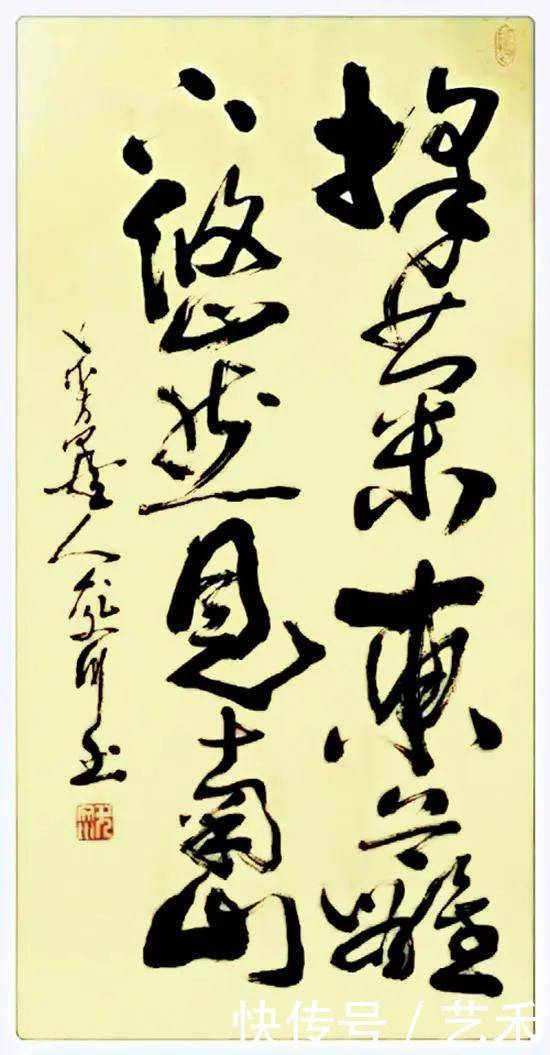 採菊東籬
下悠然見南山
墨人
快传号 / 艺禾